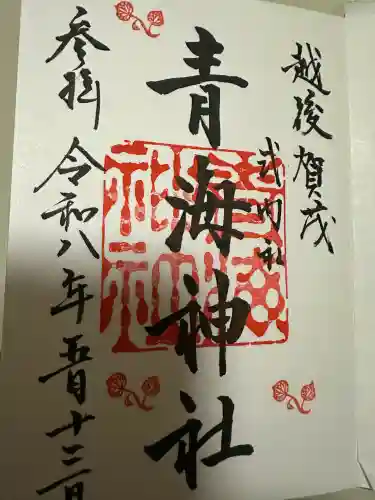 越後賀茂
式内社
青海神社
参拝
令和八年吾月十三日